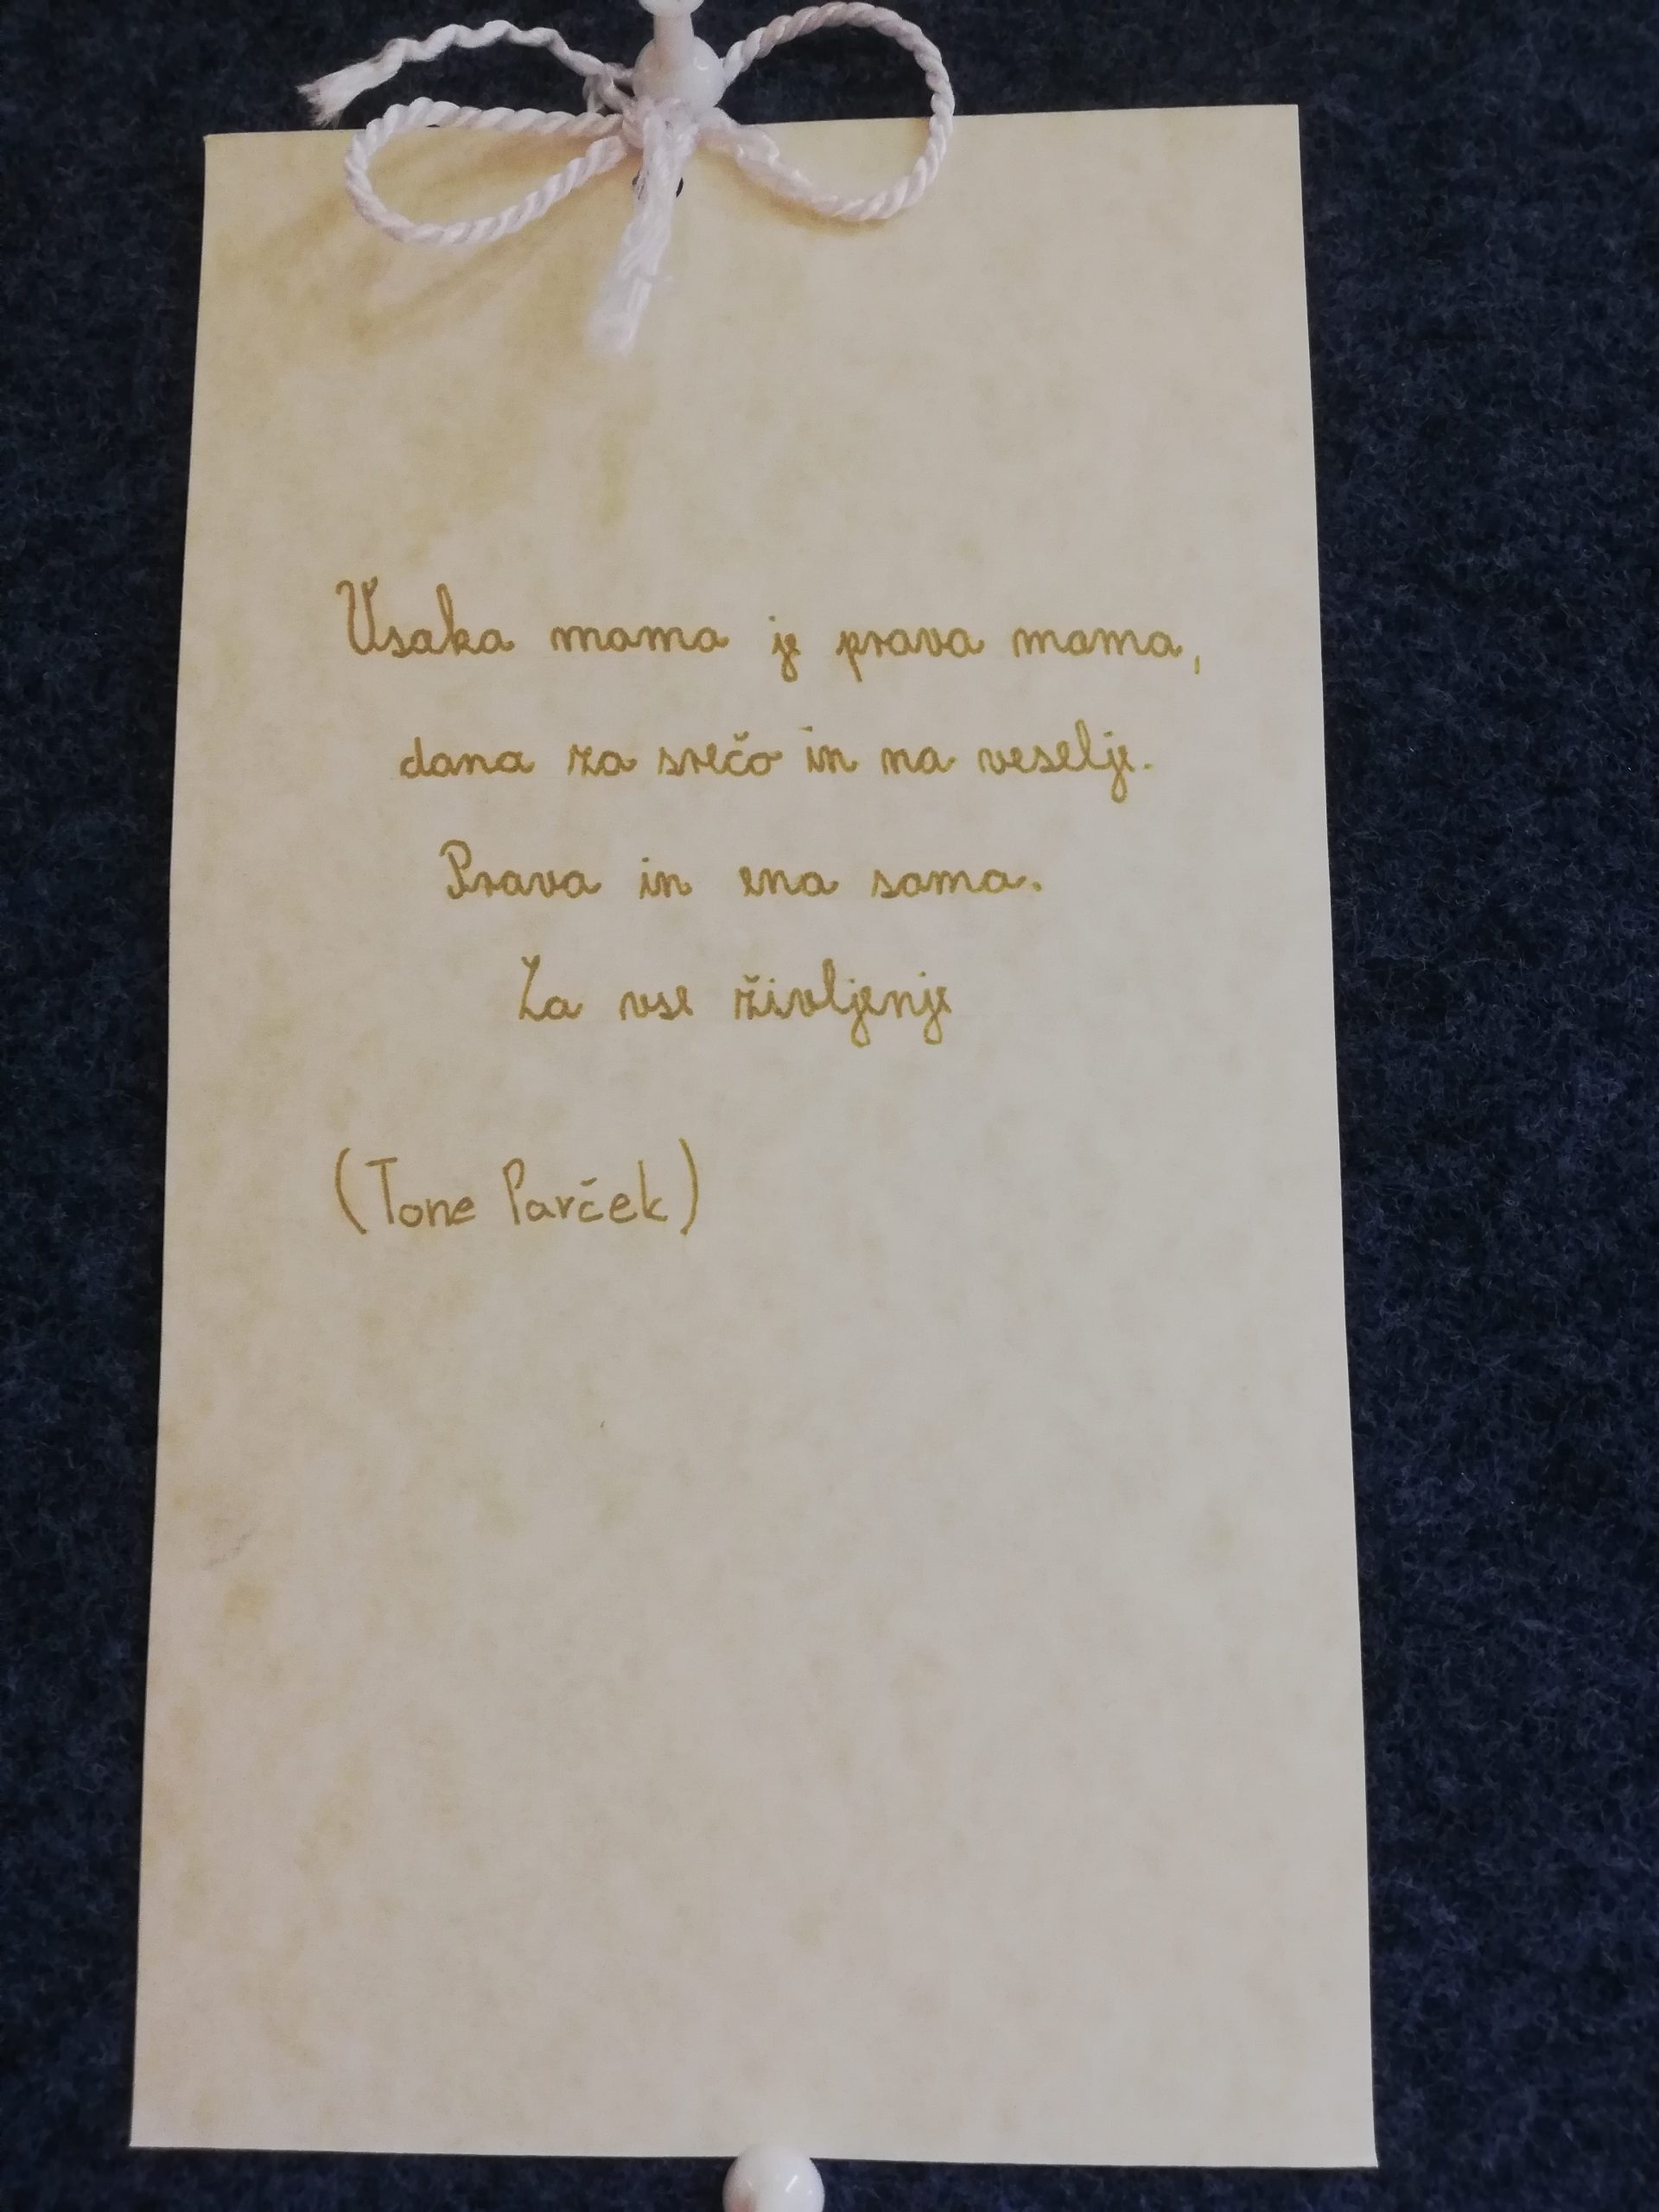 Vsaka mama je prava mama,
dana za srečo in na veselje.
Prava in ena sama.
Za vse življenje
(Tone Parček)